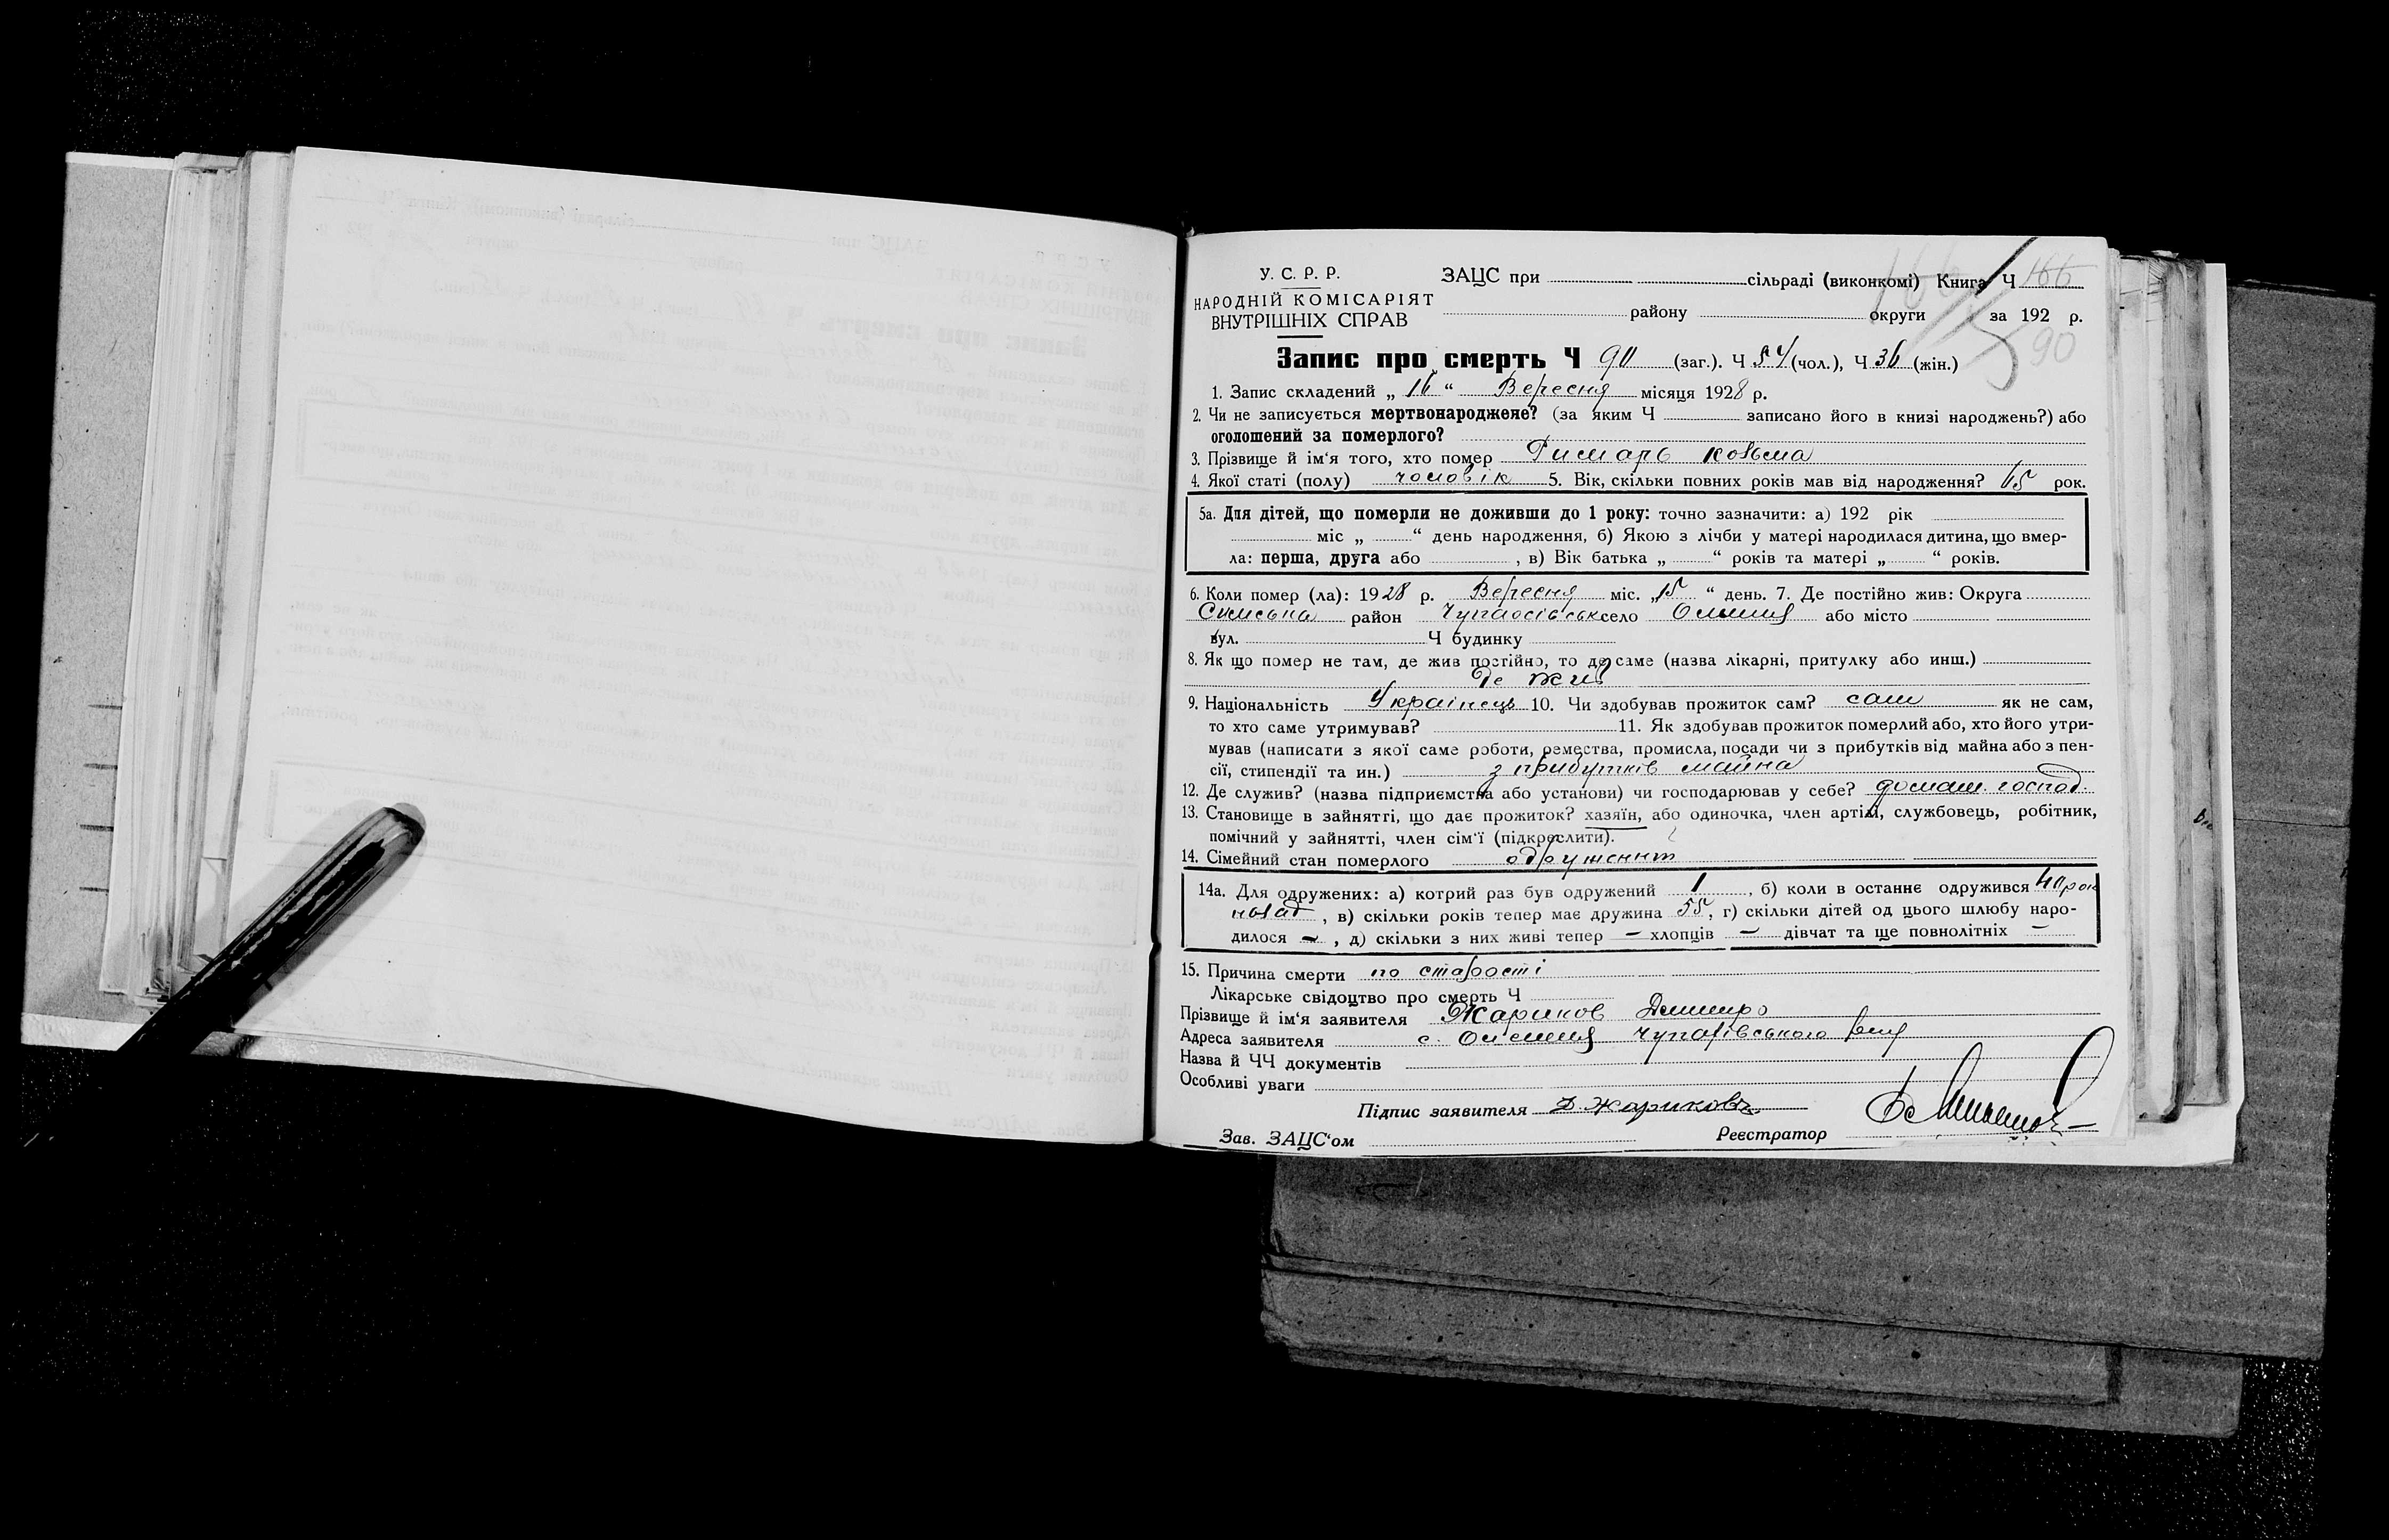 У. С. Р. Р.
НАРОДНІЙ КОМІСАРІЯТ
ВНУТРІШНІХ СПРАВ
ЗАЦС при сільраді (виконкомі) Книга Ч 166
району округи за 192 р.
90
Запис про смерть Ч 90 (заг.). Ч 54 (чол.), Ч 36 (жін.)
1. Запис складений „ 16 “ Вересня місяця 1928 р.
2. Чи не записується мертвонароджене? (за яким Ч записано його в книзі народжень?) або
оголошений за померлого?
3. Прізвище й ім'я того, хто помер Римарь Козьма
4. Якої статі (полу) чоловік 5. Вік, скільки повних років мав від народження? 65 рок.
5а. Для дітей, що померли не доживши до 1 року: точно зазначити: а) 192 рік
міс „ “ день народження, б) Якою з лічби у матері народилася дитина, що вмер-
ла: перша, друга або , в) Вік батька „ “ років та матері „ “ років.
6. Коли помер (ла): 1928 р. Вересня міс. „15 “ день. 7. Де постійно жив: Округа
Сумська район Чупахівськ село Олешня або місто
вул. Ч будинку
8. Як що помер не там, де жив постійно, то де саме (назва лікарні, притулку або инш.)
де жив
9. Національність Українець 10. Чи здобував прожиток сам? сам як не сам,
то хто саме утримував? 11. Як здобував прожиток померлий або, хто його утри-
мував (написати з якої саме роботи, ремества, промисла, посади чи з прибутків від майна або з пен-
сії, стипендії та ин.) з прибутків майна
12. Де служив? (назва підприємства або установи) чи господарював у себе? домаш. господ.
13. Становище в зайнятті, що дає прожиток? хазяїн, або одиночка, член артілі, службовець, робітник,
помічний у зайнятті, член сім'ї (підкреслити).
14. Сімейний стан померлого
14а. Для одружених: а) котрий раз був одружений 1 , б) коли в останнє одружився 40 рок
назад , в) скільки років тепер має дружина 55, г) скільки дітей од цього шлюбу наро-
дилося – , д) скільки з них живі тепер – хлопців – дівчат та ще повнолітніх –
15. Причина смерти по старості
Лікарське свідоцтво про смерть Ч
Прізвище й ім'я заявителя Жариков Дмитро
Адреса заявителя с. Олешня Чупахівського
Назва й ЧЧ документів
Особливі уваги
Підпис заявителя Д. Жариковъ
Зав. ЗАЦС'ом Реєстратор